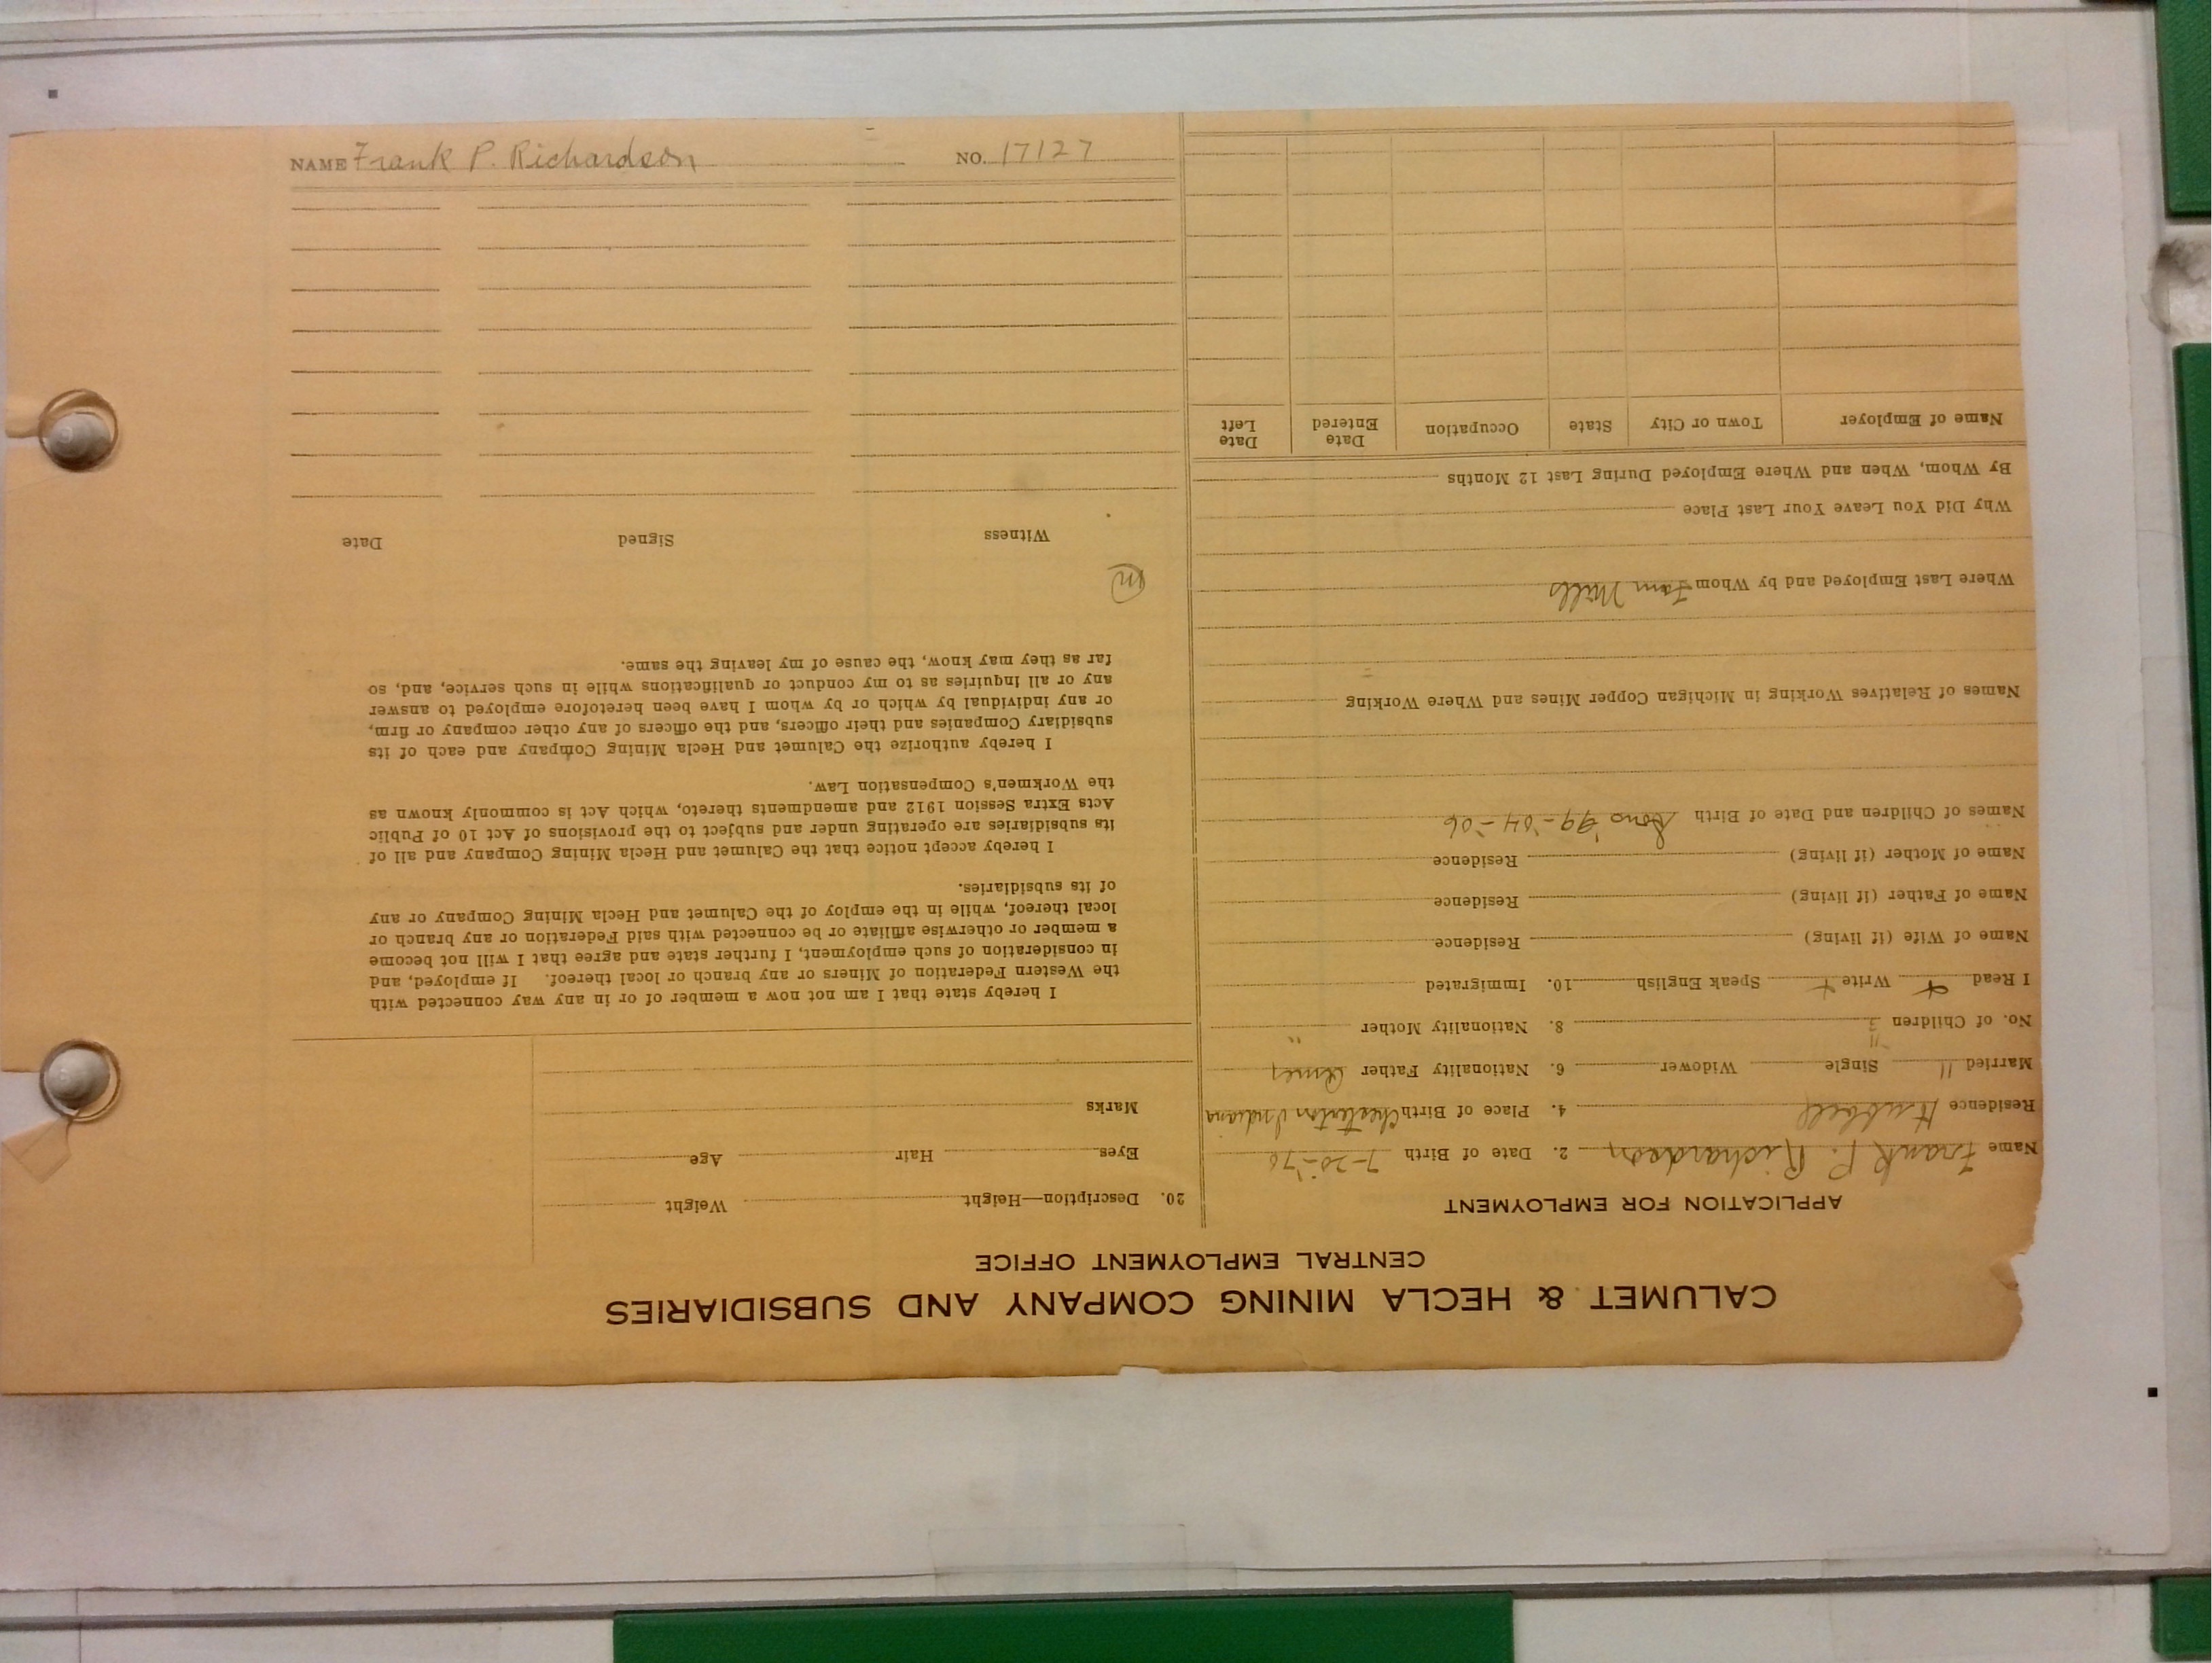 CALUMET & HECLA MINING COMPANY AND SUBSIDIARIES
CENTRAL EMPLOYMENT OFFICE
APPLICATION FOR EMPLOYMENT
Name Frank P. Richardson 2. Date of Birth 7-20-'76
Residence Hubbell 4. Place of Birth Chesterton Indiana
Married 11 Single Widower 6. Nationality Father Amer
No. of Children 3 8. Nationality Mother "
I Read Write Speak English 10. Immigrated
Name of Wife (if living) Residence
Name of Father (if living) Residence
Name of Mother (if living) Residence
Names of Children and Date of Birth Sons '99-'04-'06
Names of Relatives Working in Michigan Copper Mines and Where Working
Where Last Employed and by Whom Tam Mills
Why Did You Leave Your Last Place
By Whom, When and Where Employed During Last 12 Months
Name of Employer Town or City State Occupation Date Entered Date Left
20. Description—Height Weight
Eyes Hair Age
Marks
I hereby state that I am not now a member of or in any way connected with
the Western Federation of Miners or any branch or local thereof. If employed, and
in consideration of such employment, I further state and agree that I will not become
a member or otherwise affiliate or be connected with said Federation or any branch or
local thereof, while in the employ of the Calumet and Hecla Mining Company or any
of its subsidiaries.
I hereby accept notice that the Calumet and Hecla Mining Company and all of
its subsidiaries are operating under and subject to the provisions of Act 10 of Public
Acts Extra Session 1912 and amendments thereto, which Act is commonly known as
the Workmen's Compensation Law.
I hereby authorize the Calumet and Hecla Mining Company and each of its
subsidiary Companies and their officers, and the officers of any other company or firm,
or any individual by which or by whom I have been heretofore employed to answer
any or all inquiries as to my conduct or qualifications while in such service, and, so
far as they may know, the cause of my leaving the same.
m
Witness Signed Date
NAME Frank P. Richardson NO. 17127